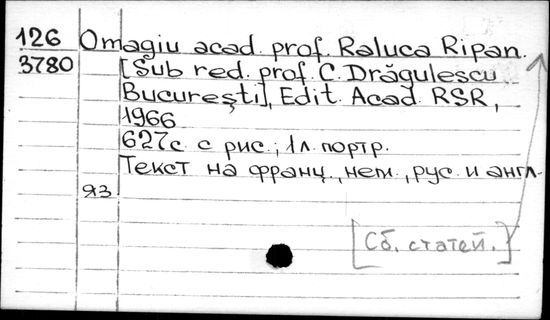 126 Omagiu acad. prof. Raluca Ripan.
3780 [Sub red. prof. C. Drăgulescu
Bucureşti], Edit. Acad. RSR,
1966
627с. с рис., 1л. портр.
Текст на франц., нем., рус. и англ.
яз
[Сб. статей.]